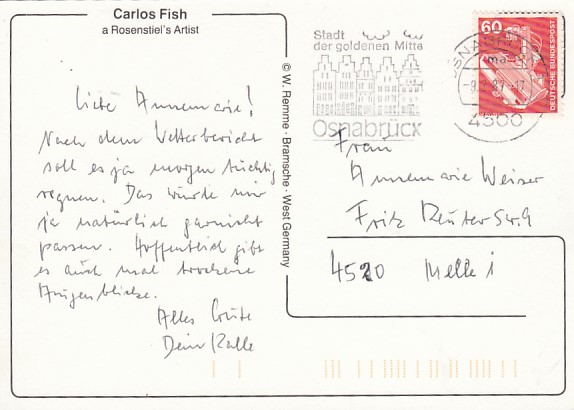 Carlos Fish
a Rosenstiel's Artist
Liebe Annemarie!
Nach dem Wetterbericht
soll es ja morgen tüchtig
regnen. Das würde mir
ja natürlich garnicht
passen. Hoffentlich gibt
es auch mal trockene
Augenblicke.
Alles Gute
Dein Kalle
© W. Remme · Bramsche · West Germany
Stadt
der goldenen Mitte
Osnabrück
OSNABRÜCK
4500
60
DEUTSCHE BUNDESPOST
Frau
Annemarie Weiser
Fritz Reuter Str. 9
4520 Melle 1